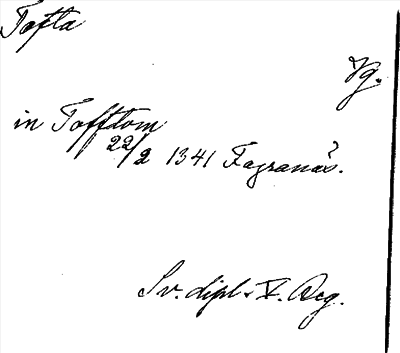 Tofta
Vg.
in Tofftom
22/2 1341 Fagranäs?.
Sv. dipl. V. Reg.